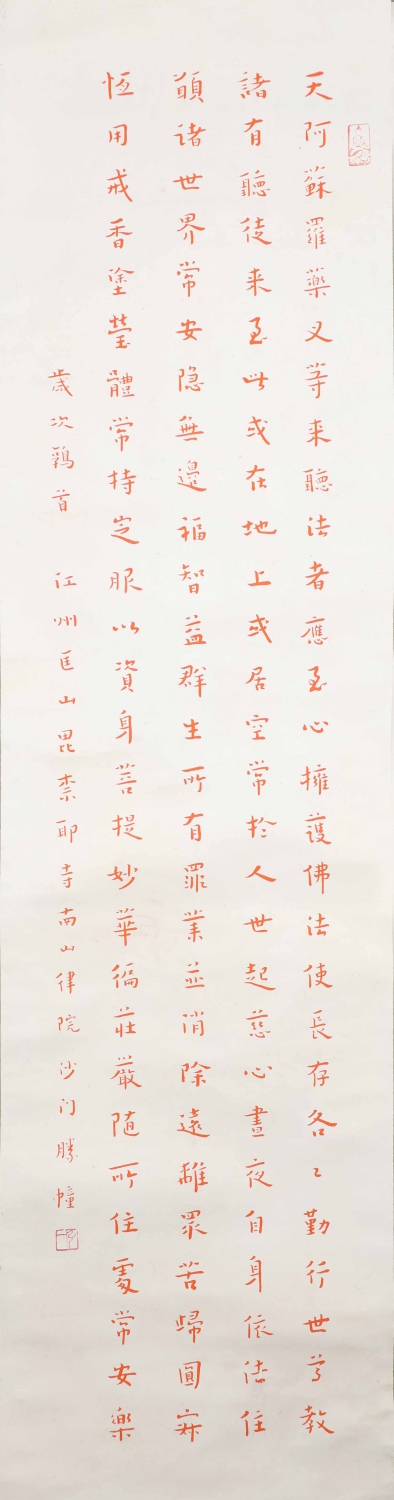 天阿蘇羅藥叉等来聽法者應至心擁護佛法使長存各々勤行世尊教
諸有聽徒来至此或在地上或居空常於人世起慈心晝夜自身依法住
願诸世界常安隐無邊福智益群生所有罪業並消除遠離眾苦歸圓寂
恆用戒香塗瑩體常持定服以資身菩提妙華徧莊嚴随所住處常安樂
歲次鶉首 江州匡山毘柰耶寺南山律院沙门勝幢